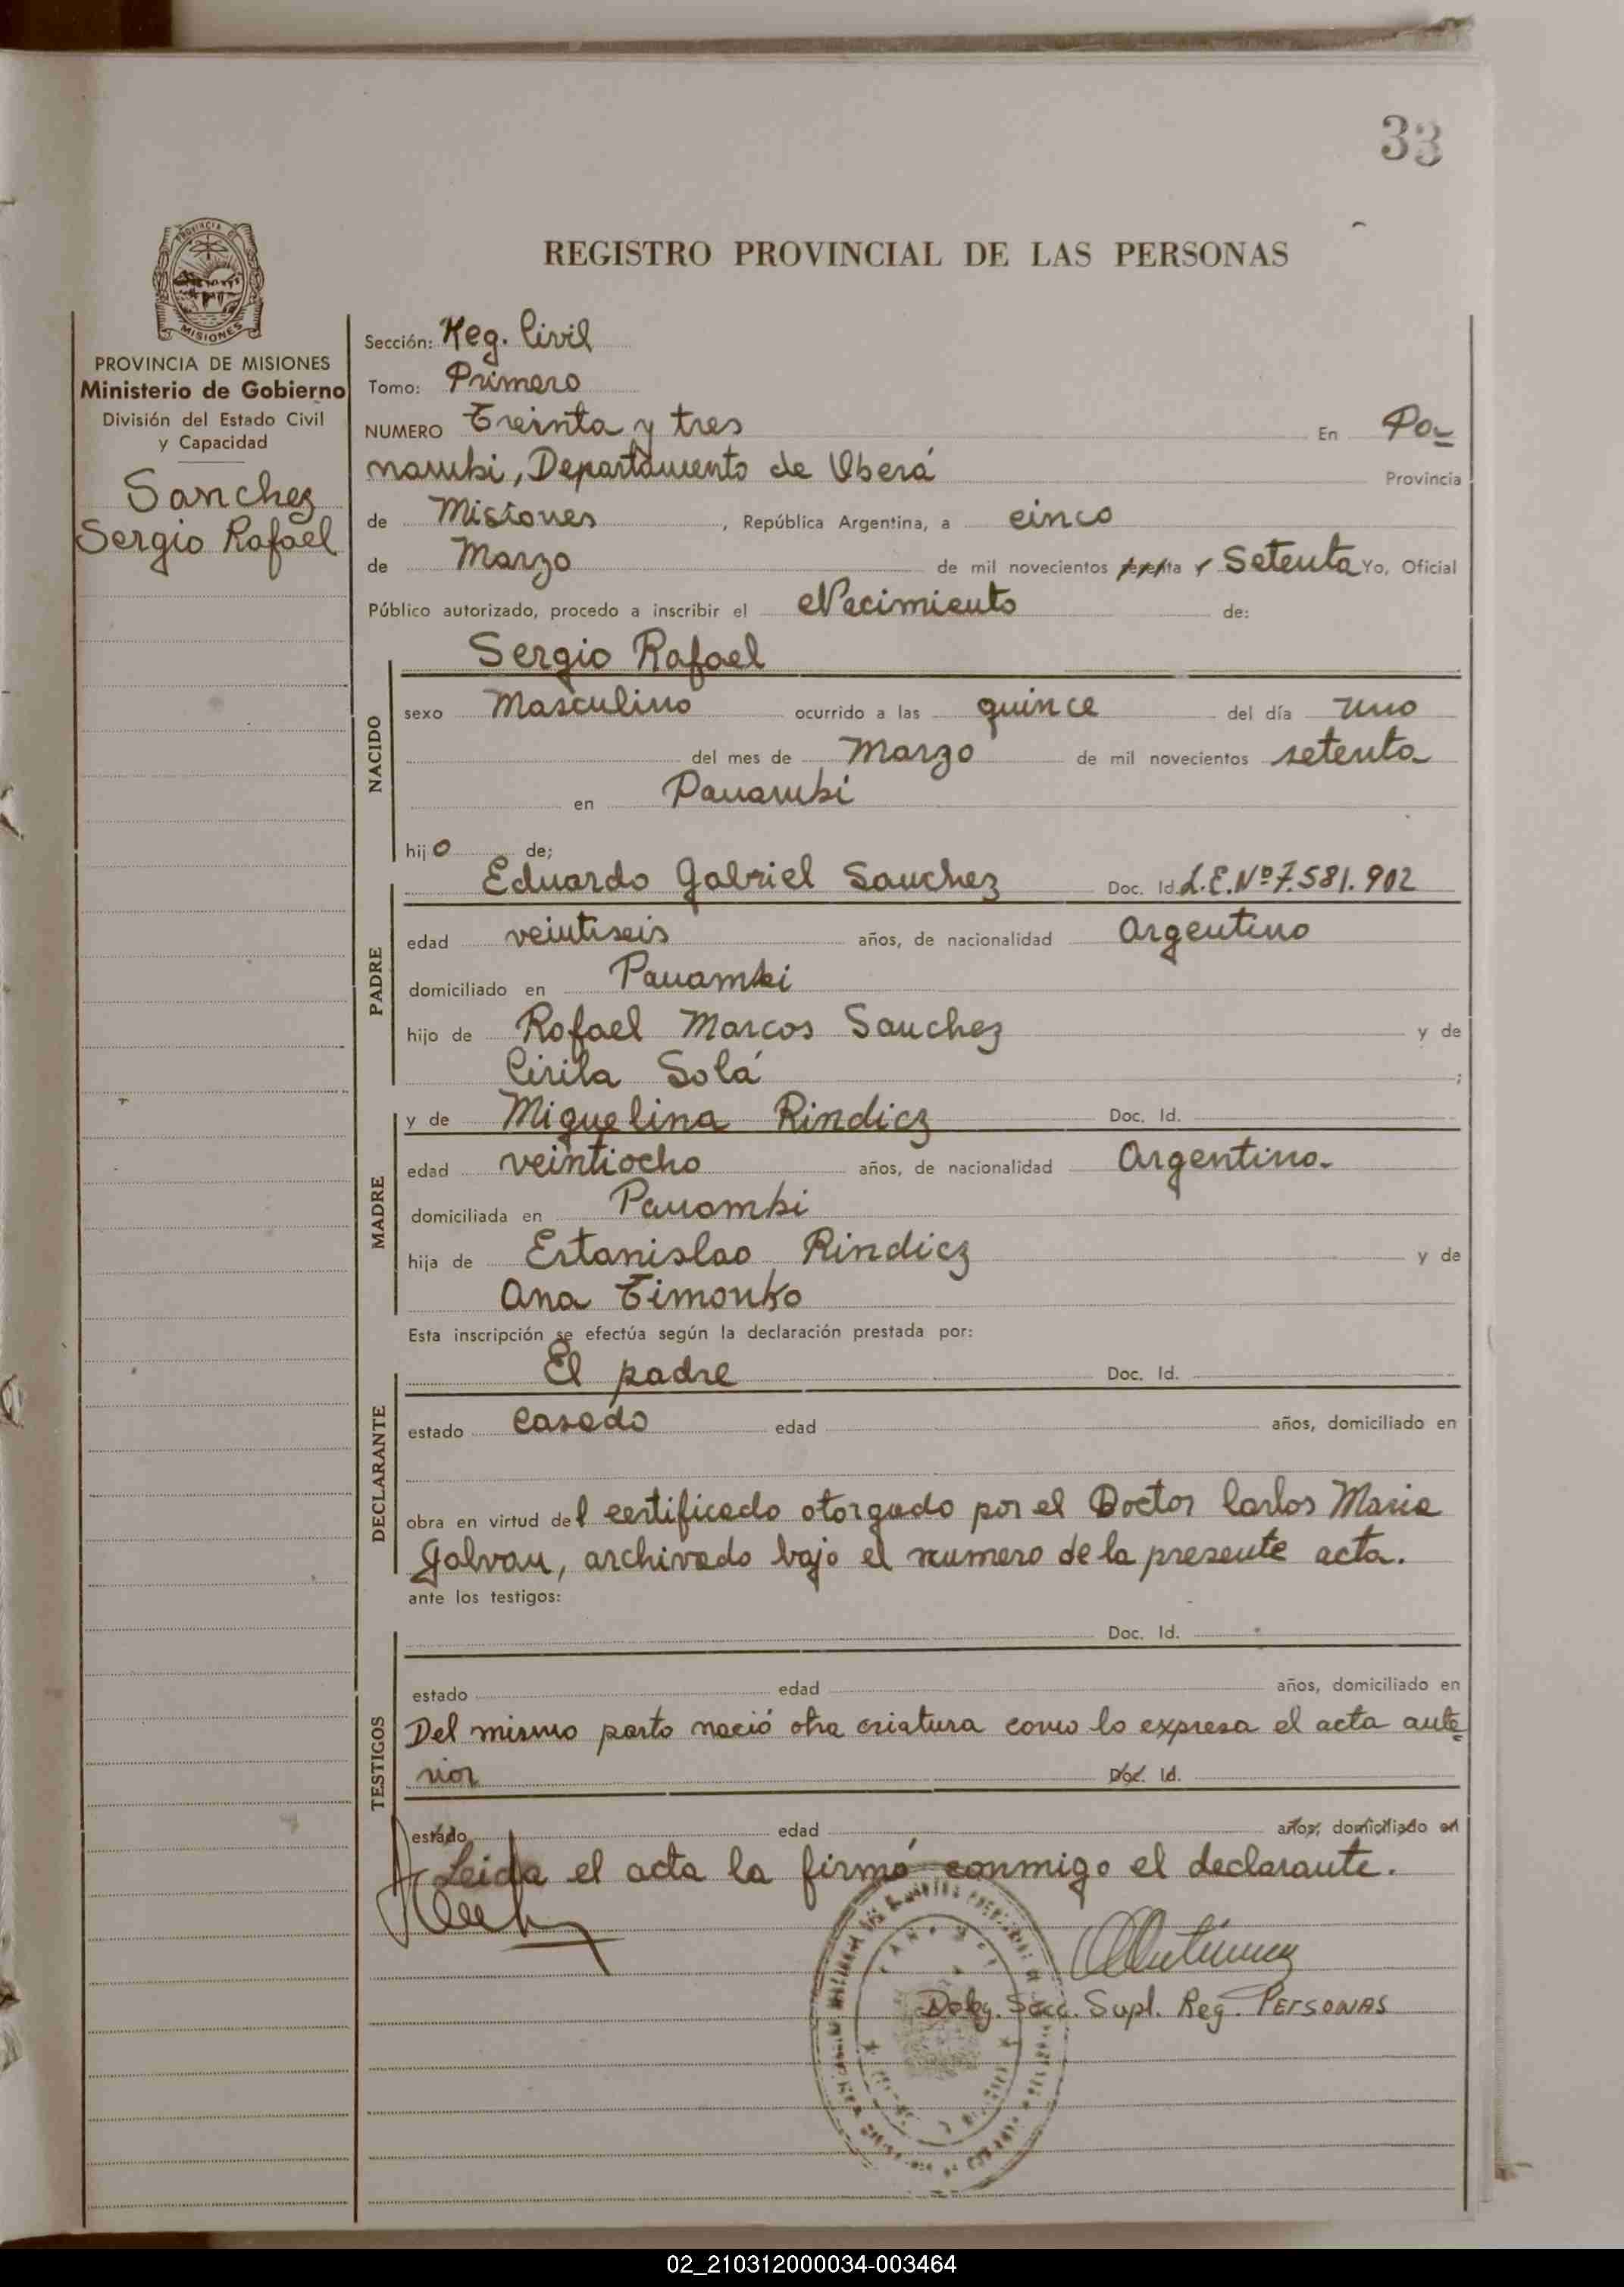 33
PROVINCIA DE
MISIONES
REGISTRO PROVINCIAL DE LAS PERSONAS
PROVINCIA DE MISIONES
Ministerio de Gobierno
División del Estado Civil
y Capacidad
Sanchez
Sergio Rafael
Sección: Reg. Civil
Tomo: Primero
NUMERO Treinta y tres En Pa-
nambi, Departamento de Oberá Provincia
de Misiones, República Argentina, a cinco
de Marzo de mil novecientos sesenta y Setenta Yo, Oficial
Público autorizado, procedo a inscribir el Nacimiento de:
Sergio Rafael
NACIDO
sexo Masculino ocurrido a las quince del día uno
del mes de Marzo de mil novecientos setenta
en Panambi
hijo de;
Eduardo Gabriel Sanchez Doc. Id. L.E. Nº 7.581.902
PADRE
edad veintiseis años, de nacionalidad Argentino
domiciliado en Panambi
hijo de Rafael Marcos Sanchez y de
Cirila Solá ;
y de Miguelina Rindicz Doc. Id.
MADRE
edad veintiocho años, de nacionalidad Argentina.
domiciliada en Panambi
hija de Estanislao Rindicz y de
Ana Timonko
Esta inscripción se efectúa según la declaración prestada por:
El padre Doc. Id.
DECLARANTE
estado casado edad años, domiciliado en
obra en virtud del certificado otorgado por el Doctor Carlos Maria
Galvan, archivado bajo el numero de la presente acta.
ante los testigos:
Doc. Id.
TESTIGOS
estado edad años, domiciliado en
Del mismo parto nació otra criatura como lo expresa el acta ante
rior Doc. Id.
estado edad años, domiciliado en
Leida el acta la firmó conmigo el declarante.
Deleg. Secc. Supl. Reg. PERSONAS
02_210312000034-003464